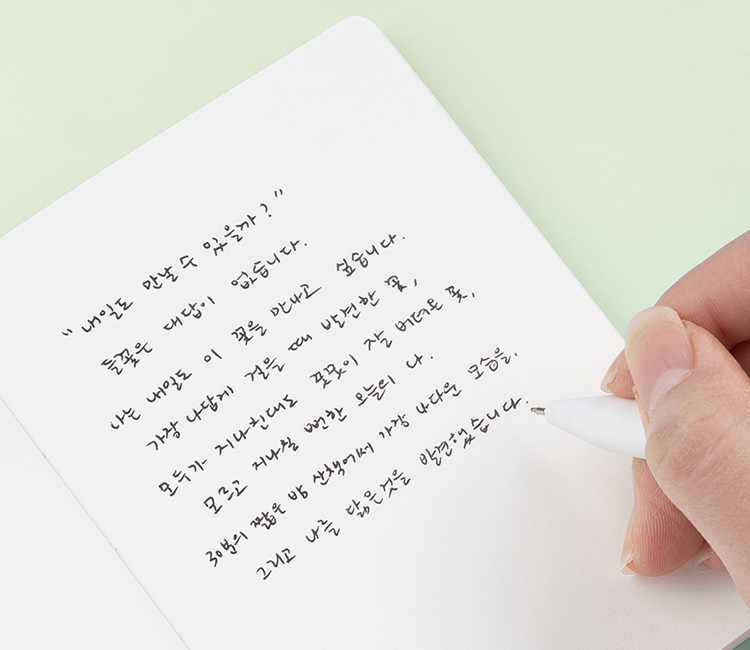 "내일도 만날 수 있을까?"
들꽃은 대답이 없습니다.
나는 내일도 이 꽃을 만나고 싶습니다.
가장 나답게 걸을 때 발견한 꽃,
모두가 지나친대도 꿋꿋이 잘 버텨온 꽃,
모르고 지나칠 뻔한 오늘의 나.
30분의 짧은 밤 산책에서 가장 나다운 모습을,
그리고 나를 닮은것을 발견했습니다.